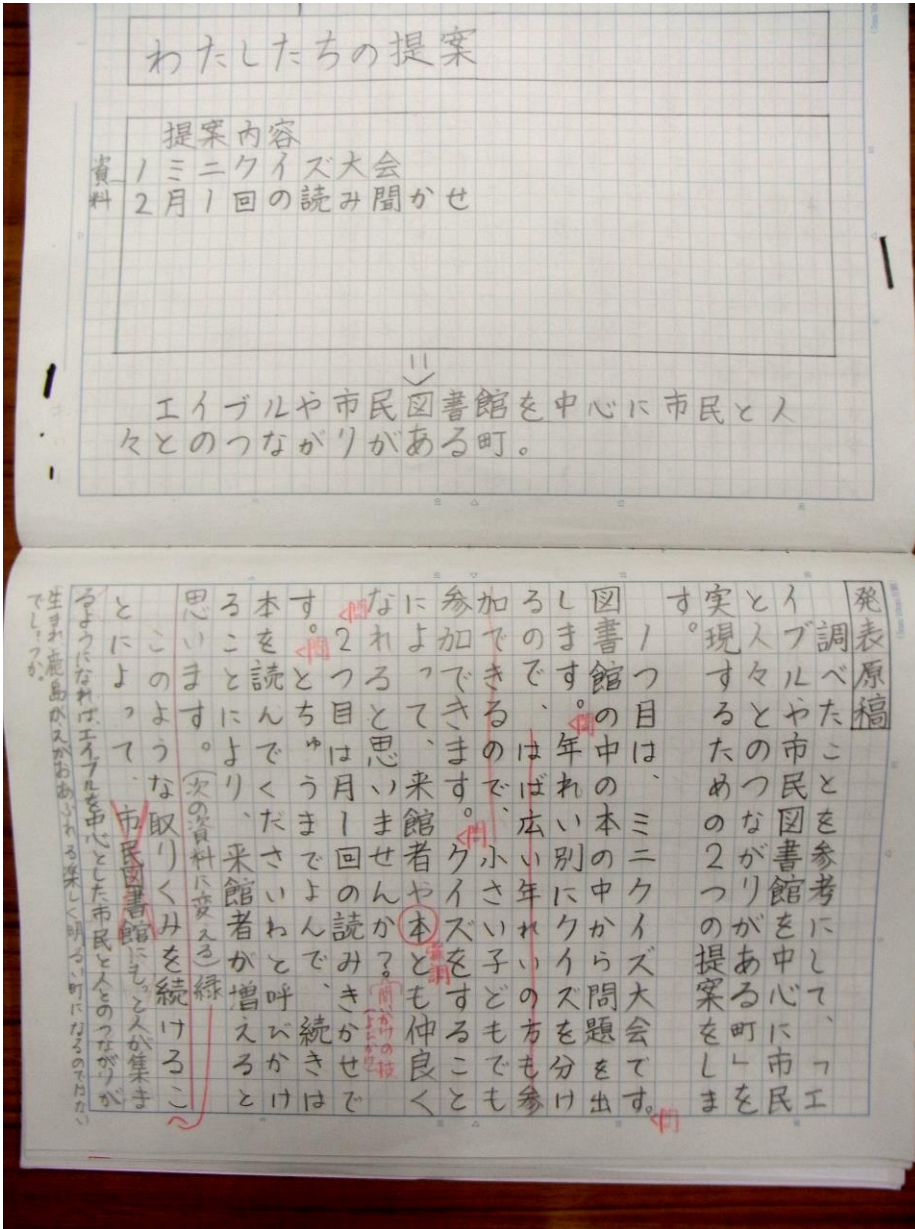 わたしたちの提案
提案内容
資料
1ミニクイズ大会
2月1回の読み聞かせ
エイブルや市民図書館を中心に市民と人
々とのつながりがある町。
発表原稿
調べたことを参考にして、「エ
イブルや市民図書館を中心に市民
と人々とのつながりがある町」を
実現するための2つの提案をしま
す。
1つ目は、ミニクイズ大会です。
図書館の中の本の中から問題を出
します。年れい別にクイズを分け
るので、はば広い年れいの方も参
加できるので、小さい子どもでも
参加できます。クイズをすること
によって、来館者や本とも仲良く
なれると思いませんか?
2つ目は月1回の読みきかせで
す。とちゅうまでよんで、続きは
本を読んでくださいねと呼びかけ
ることにより、来館者が増えると
思います。(次の資料に変える)緑
このような取りくみを続けるこ
とによって、市民図書館にもっと人が集ま
るようになれば、エイブルを中心とした市民と人とのつながりが
生まれ鹿島が、えがおあふれる楽しく明るい町になるのではない
でしょうか。
間
間
間
間
間
強調